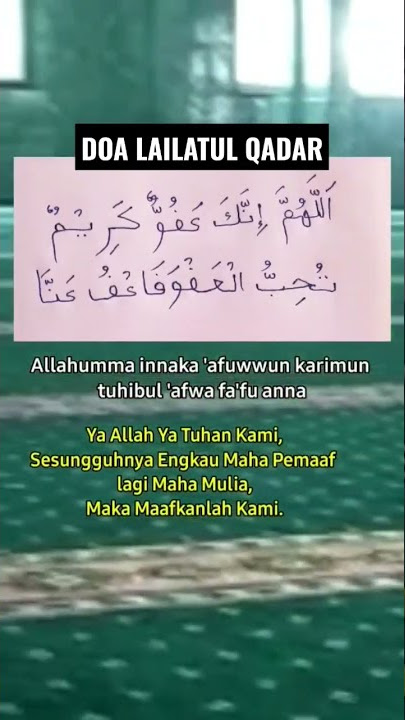 DOA LAILATUL QADAR
اَللّٰهُمَّ إِنَّكَ عَفُوٌّ كَرِيْمٌ
تُحِبُّ الْعَفْوَفَاعْفُ عَنَّا
Allahumma innaka 'afuwwun karimun
tuhibul 'afwa fa'fu anna
Ya Allah Ya Tuhan Kami,
Sesungguhnya Engkau Maha Pemaaf
lagi Maha Mulia,
Maka Maafkanlah Kami.